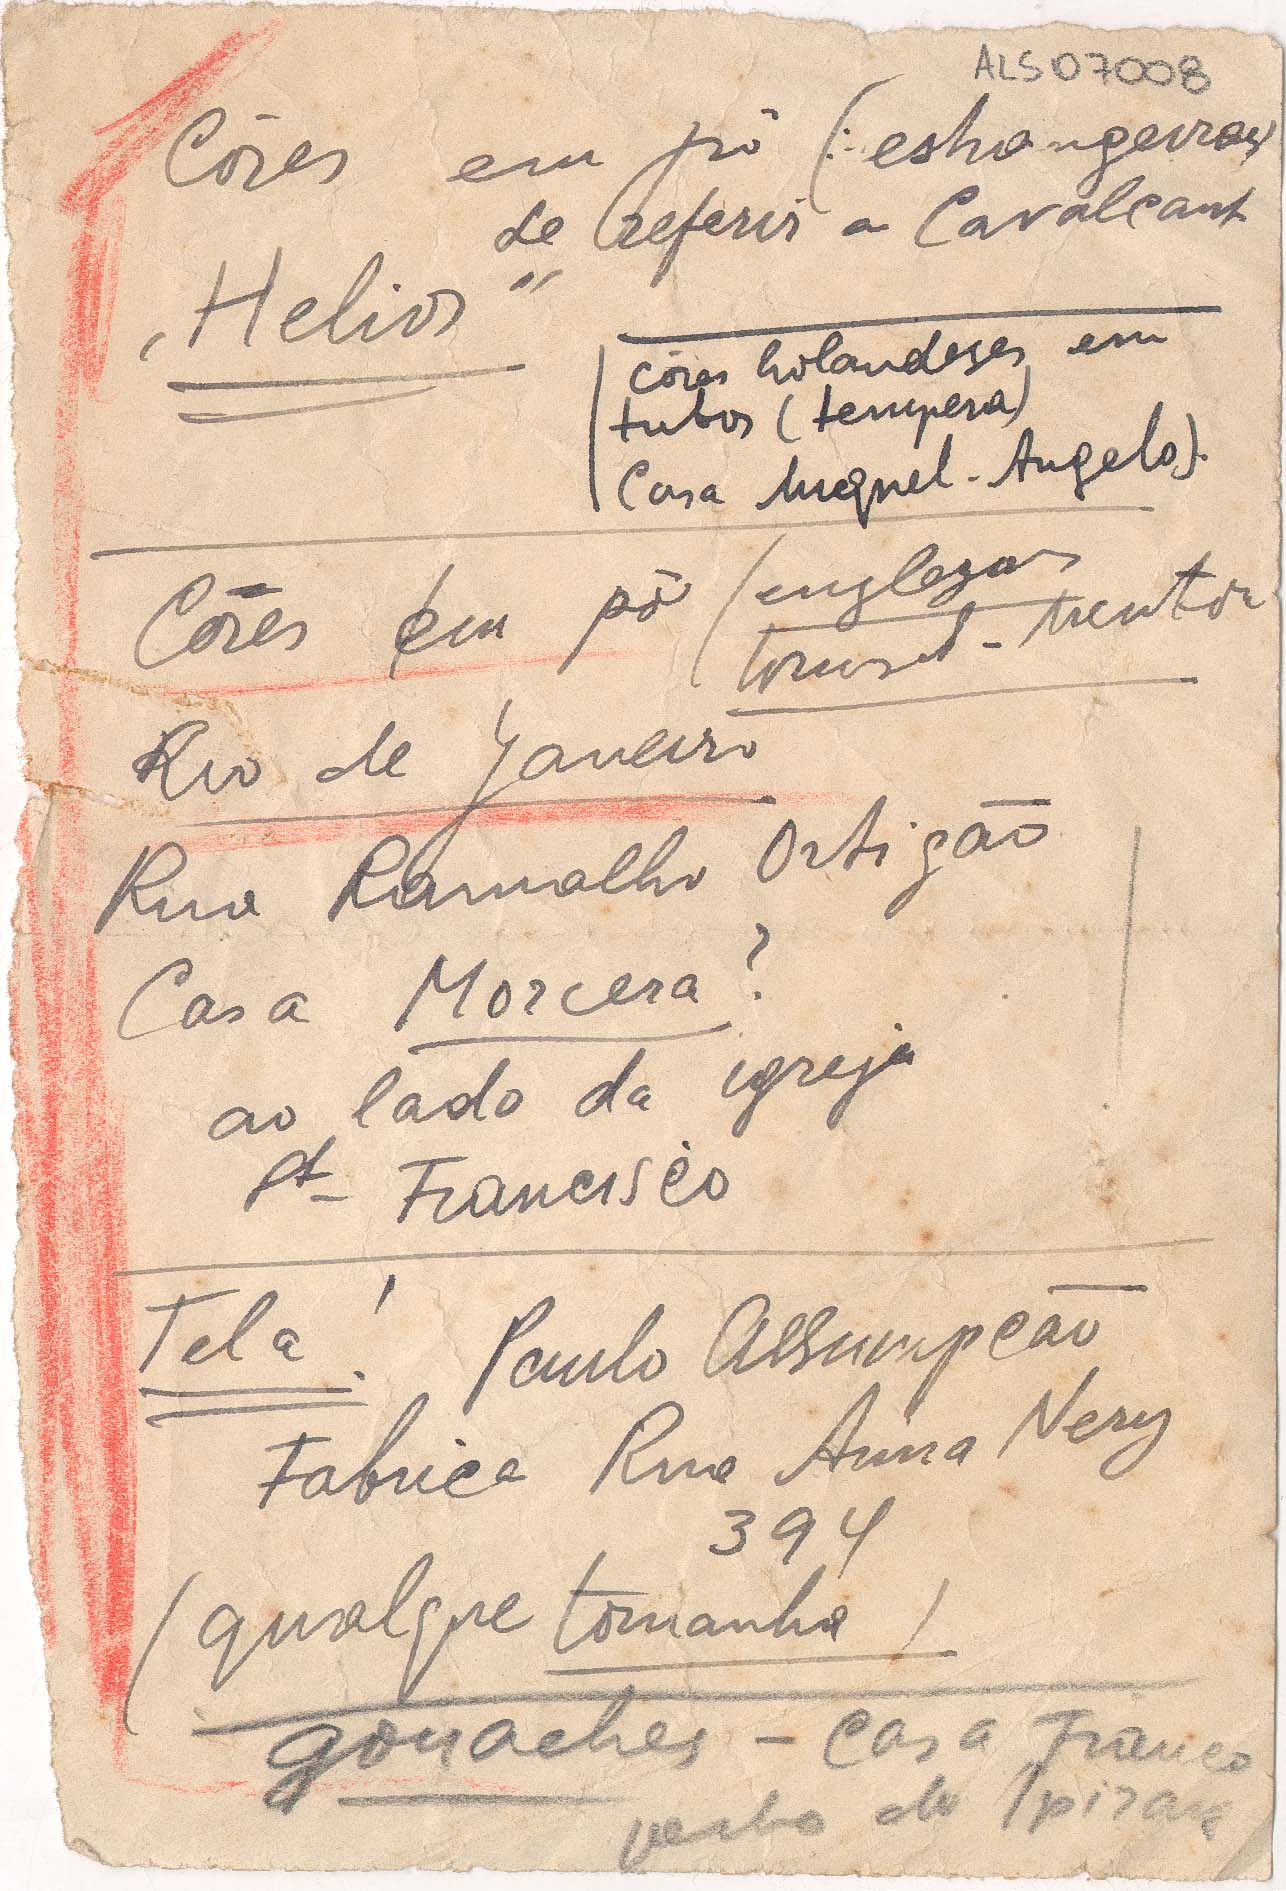 ALS07008
Côres em pó (: estrangeiras
de referir a Cavalcant
"Helios"
côres holandeses em
tubos (tempera)
Casa Miguel-Angelo).
Côres em pó (englezas
Rio de Janeiro
Rua Ramalho Ortigão
Casa Morcera?
ao lado da igreja
St- Francisco
Tela! Paulo Assumpção
Fabrica Rua Anna Nery
394
(qualque tomanho)
gouaches - casa Franco
do Ipiranga